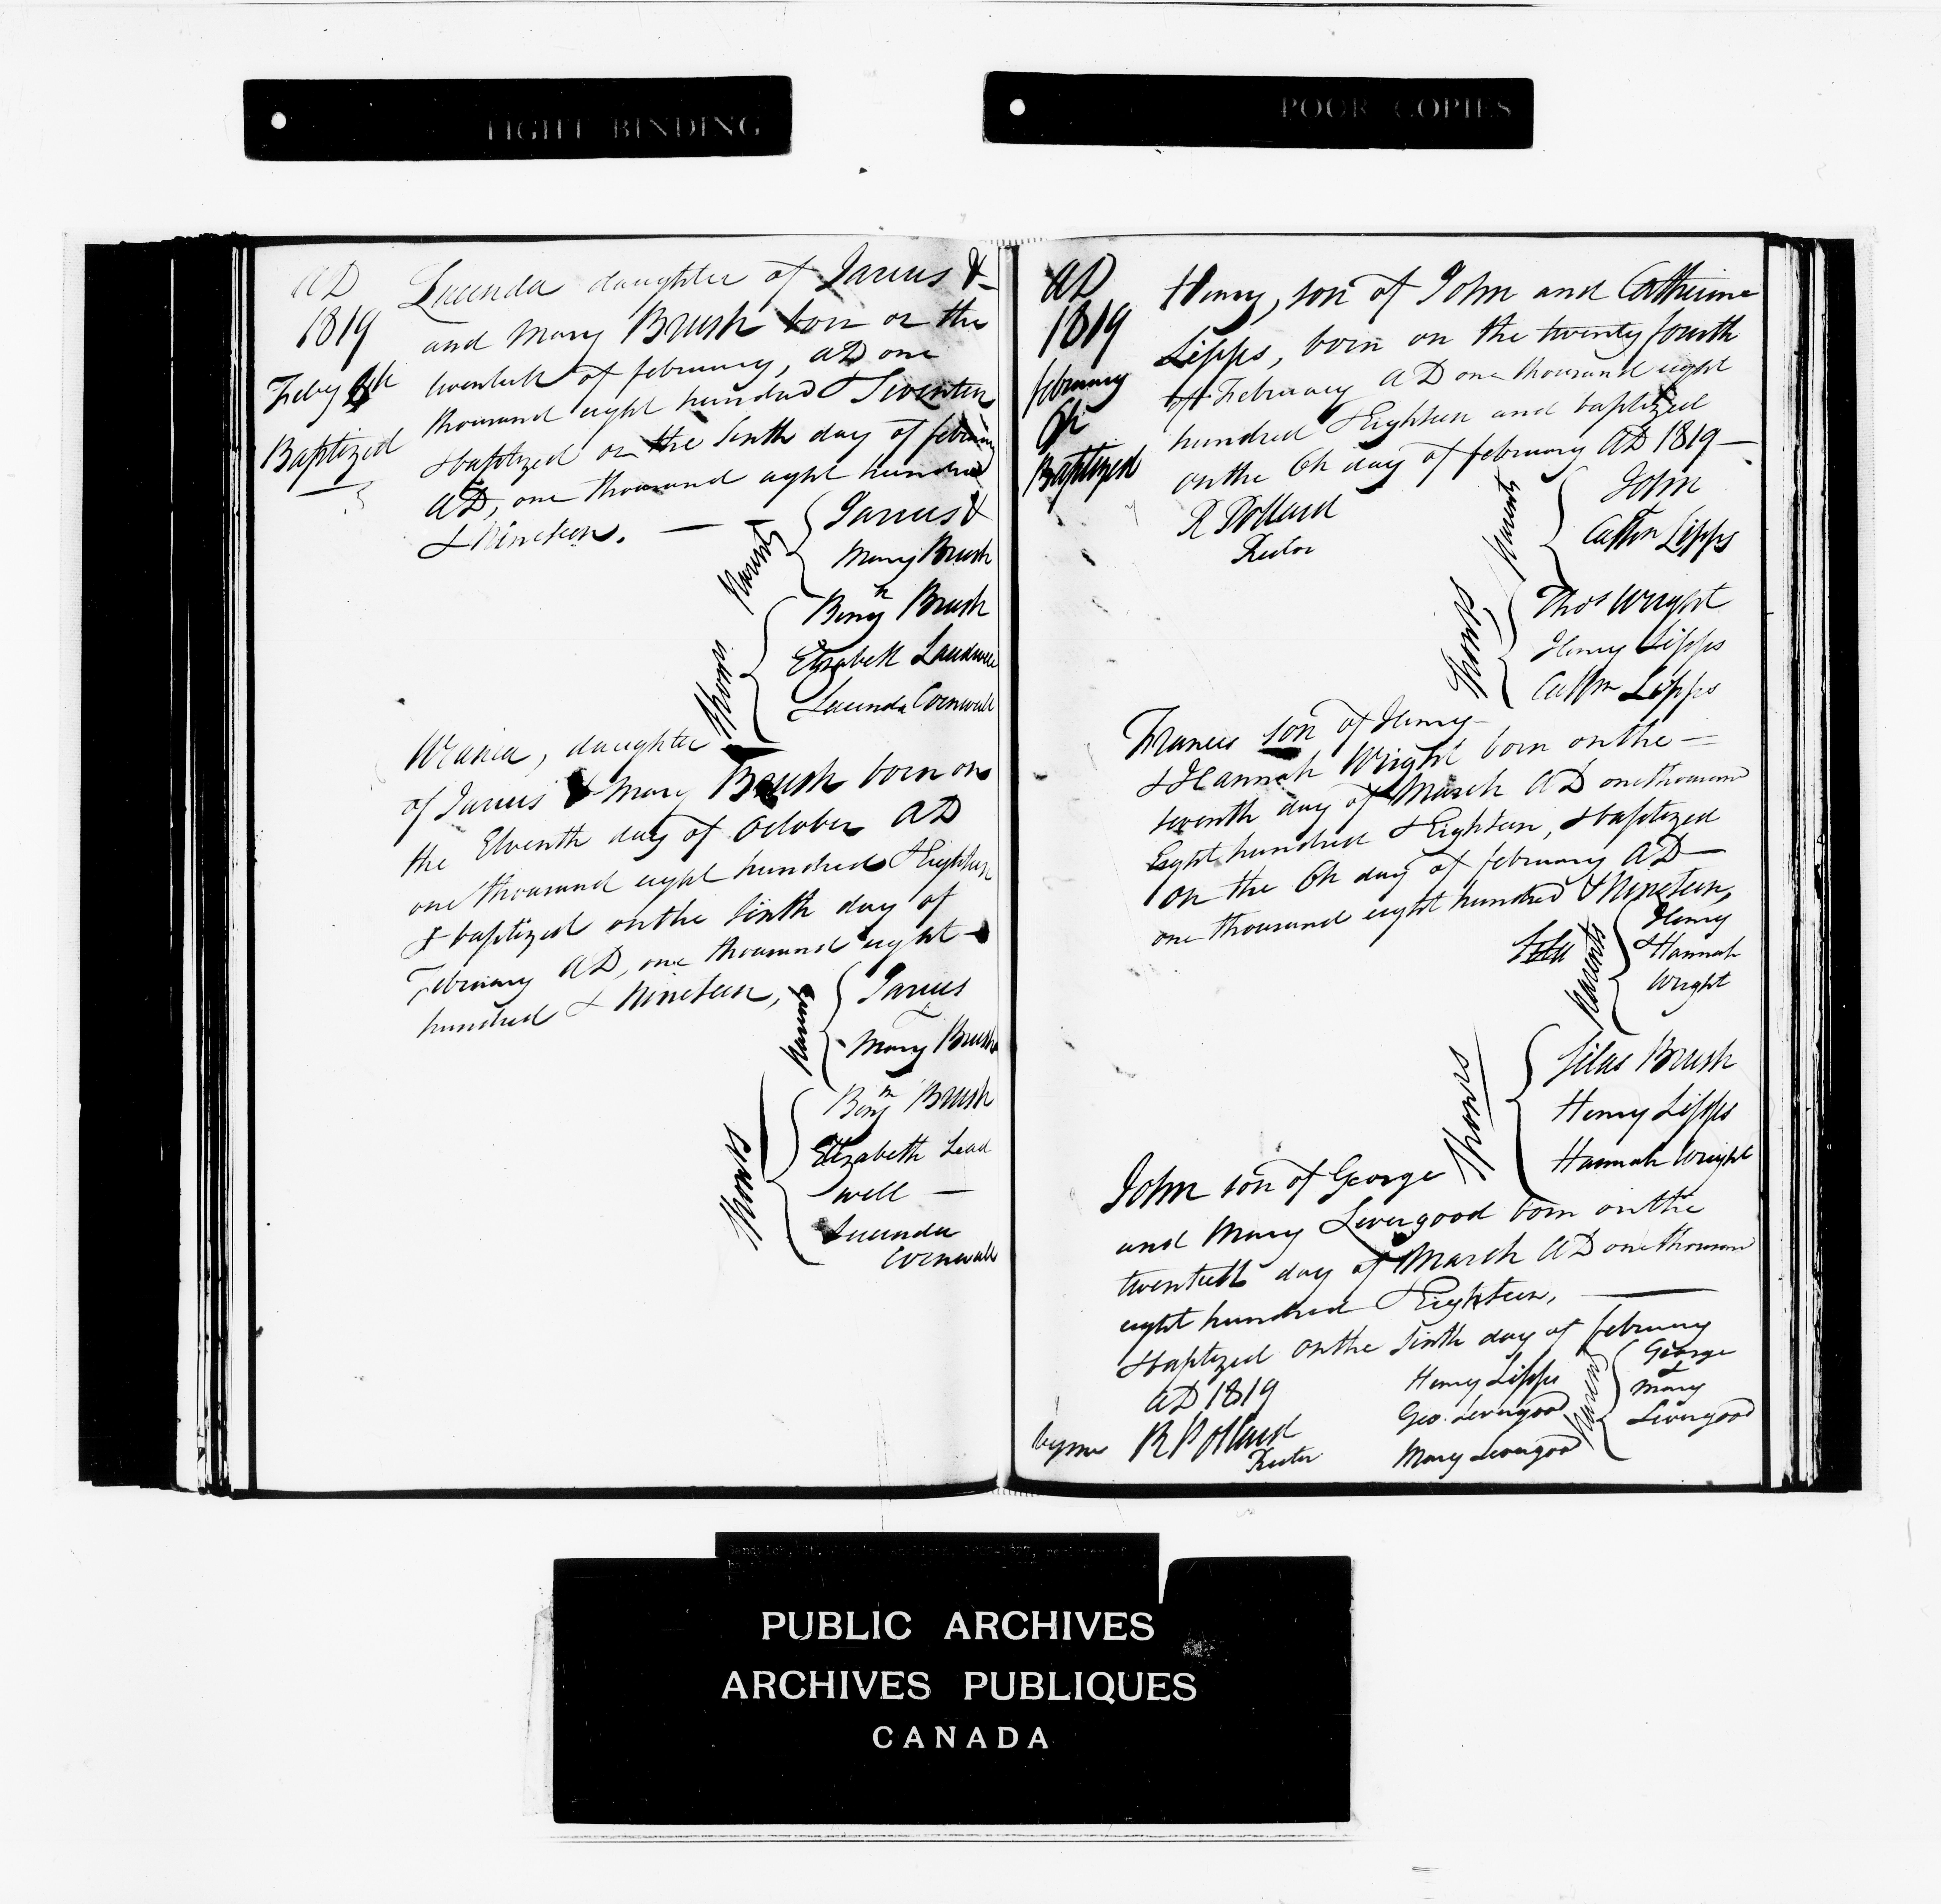 TIGHT BINDING
POOR COPIES
AD
1819
Feby 6th
Baptized
Lucenda daughter of Jarius &
and Mary Brush born on the
twentieth of february, AD one
thousand eight hundred & Seventeen
& baptized on the Sixth day of february
AD, one thousand eight hundred
& Nineteen.
Parents
Jarius &
Mary Brush
Sponsrs
Benjn Brush
Elizabeth
Lucenda Cornwall
Urania, daughter
of Jarius & Mary Brush born on
the Eleventh day of October AD
one thousand eight hundred & Eighteen
& baptized on the Sixth day of
February AD, one thousand eight
hundred & Nineteen,
Parents
Jarius
Mary Brush
Sponsrs
Benjn Brush
Elizabeth Lead
well
Lucenda
Cornwall
AD
1819
february
6h
Baptized
Henry, son of John and Catherine
Lipps, born on the twenty fourth
of February AD one thousand eight
hundred & Eighteen and baptized
on the 6h day of february AD 1819
R Pollard
Rector
Parents
John
Cathn Lipps
Sponsrs
Thos Wright
Henry Lipps
Cathn Lipps
Francis son of Henry
& Hannah Wright born on the
seventh day of March AD one thousand
Eight hundred & Eighteen, & baptized
on the 6h day of february AD
one thousand eight hundred & Nineteen,
Parents
Henry
& Hannah
Wright
Sponsrs
Silas Brush
Henry Lipps
Hannah Wright
John son of George
and Mary Levergood born on the
twentieth day of March AD one thousand
eight hundred & Eighteen,
& baptized on the Sixth day of february
AD 1819
by me R Pollard
Rector
Henry Lipps
Geo. Levergood
Mary Levergood
Parents
George
&
Mary
Levergood
PUBLIC ARCHIVES
ARCHIVES PUBLIQUES
CANADA